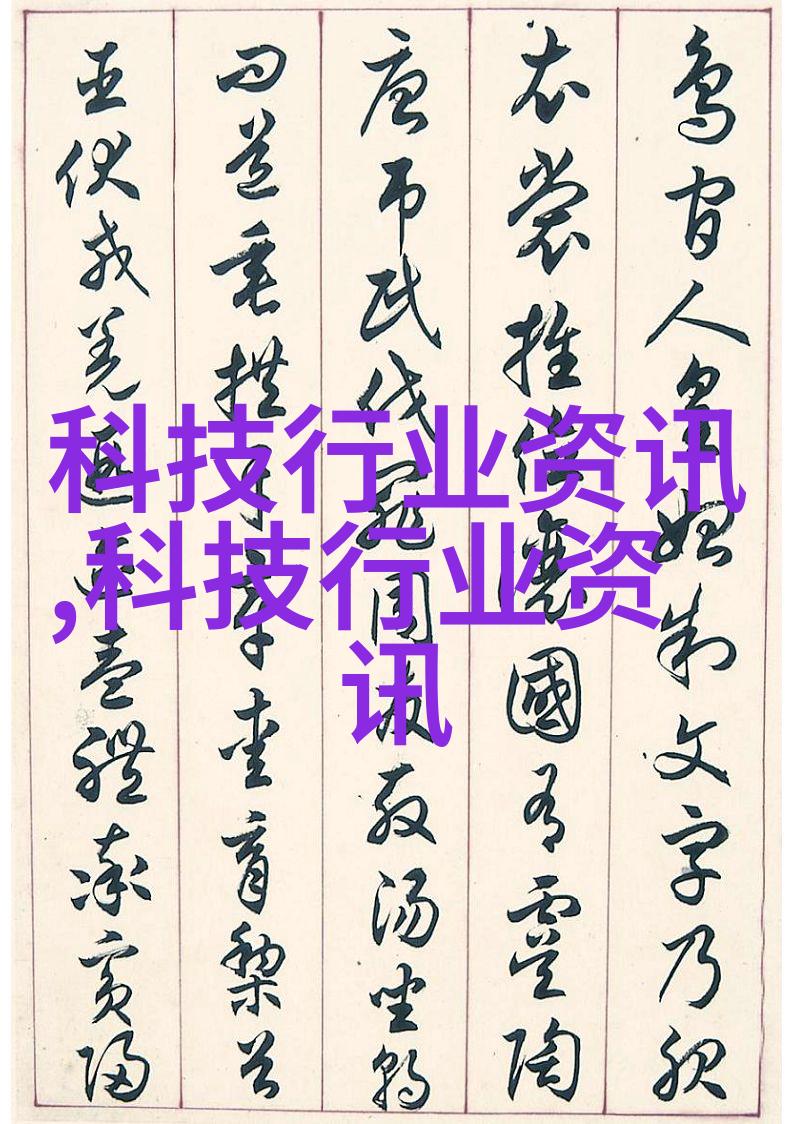 科技行业资讯
,科技行业资
讯
鳥官人皇始制文字乃服
衣裳推位讓國有虞陶
唐弔民伐罪周發殷湯坐朝
問道垂拱平章愛育黎首
臣伏戎羌遐邇壹體率賓歸